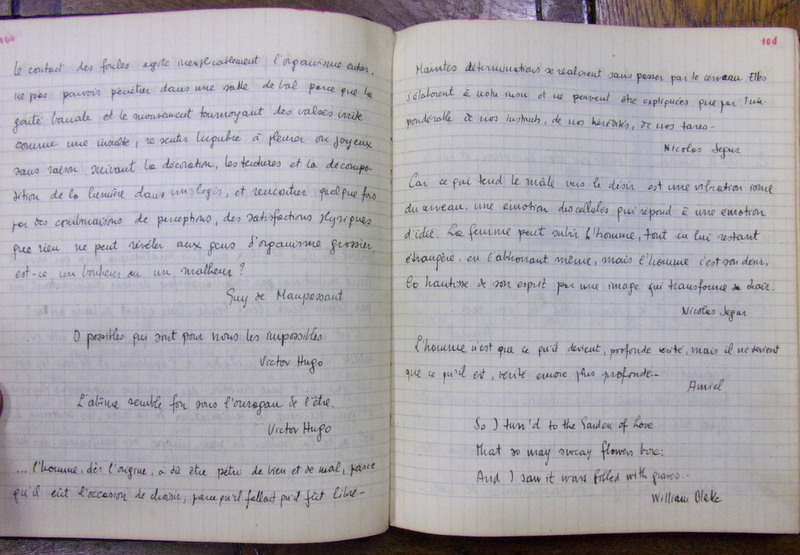 Le contact des foules agite inexplicablement l'organisme entier,
ne pas pouvoir pénétrer dans une salle de bal parce que la
gaité banale et le mouvement tournoyant des valses irrite
comme une insulte, se sentir lugubre à pleurer ou joyeux
sans raison suivant la décoration, les tentures et la décompo-
sition de la lumière dans un logis, et rencontrer quelque fois
par des combinaisons de perceptions, des satisfactions physiques
que rien ne peut révéler aux gens d'organisme grossier,
est-ce un bonheur ou un malheur?
Guy de Maupassant
O possibles qui sont pour nous les impossibles
Victor Hugo
L'abîme semble fou sous l'ouragan de l'être.
Victor Hugo
... l'homme, dès l'origine, a dû être pétri de bien et de mal, parce
qu'il eût l'occasion de choisir; parce qu'il fallait qu'il fût libre-
104
Maintes déterminations se réalisent sans passer par le cerveau. Elles
s'élaborent à notre insu et ne peuvent être expliquées que par l'im-
pondérable de nos instincts, de nos hérédités, de nos tares-
Nicolas Segur
Car ce qui tend le mâle vers le désir est une vibration issue
du cerveau. une émotion des cellules qui répond à une émotion
d'idée. La femme peut subir l'homme, tout en lui restant
étrangère, en l'abhorrant même, mais l'homme c'est son desir,
la hantise de son esprit par une image qui transforme sa chair.
Nicolas Segur
L'homme n'est que ce qu'il devient, profonde vérité, mais il ne devient
que ce qu'il est, vérité encore plus profonde-
Amiel
So I turn'd to the Garden of Love
That so many sweay flowers bore;
And I saw it wars filled with graves-
William Blake